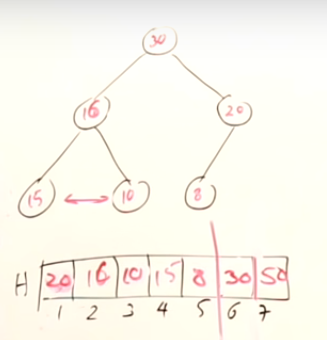 30
16 20
15 10 8
H 20 16 10 15 8 30 50
1 2 3 4 5 6 7